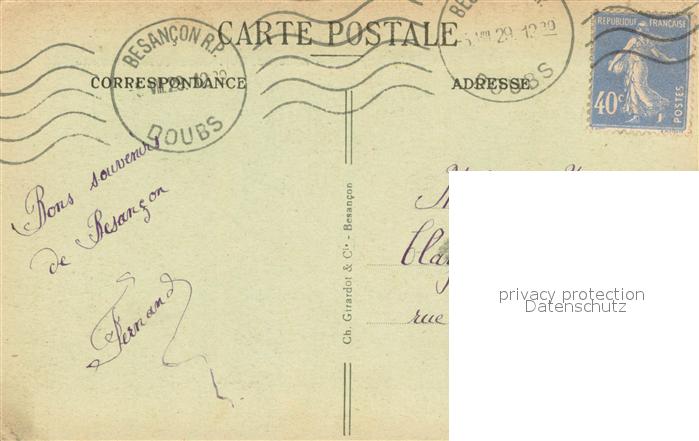 CARTE POSTALE
CORRESPONDANCE
ADRESSE
BESANÇON R.P.
DOUBS
BESANÇON R.P.
29 12 30
DOUBS
REPUBLIQUE FRANÇAISE
40c
POSTES
Bons souvenirs
de Besançon
Fernand
Ch. Girardot & Cie - Besançon
rue
privacy protection
Datenschutz